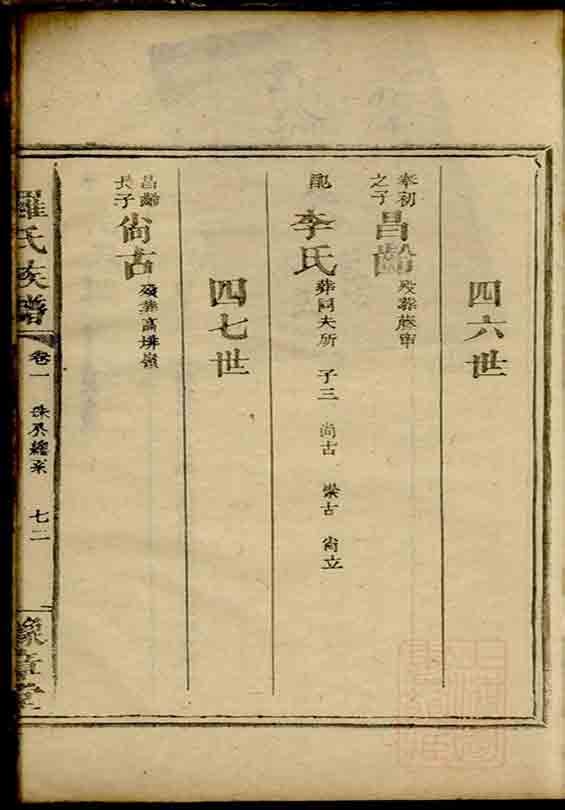 四六世
奉初之子
昌齡
歿葬藤車
配
李氏
葬同夫所 子三 尚古 崇古 尚立
四七世
昌齡長子
尚古
歿葬高壠嶺
羅氏族譜
卷一
七二
豫章堂